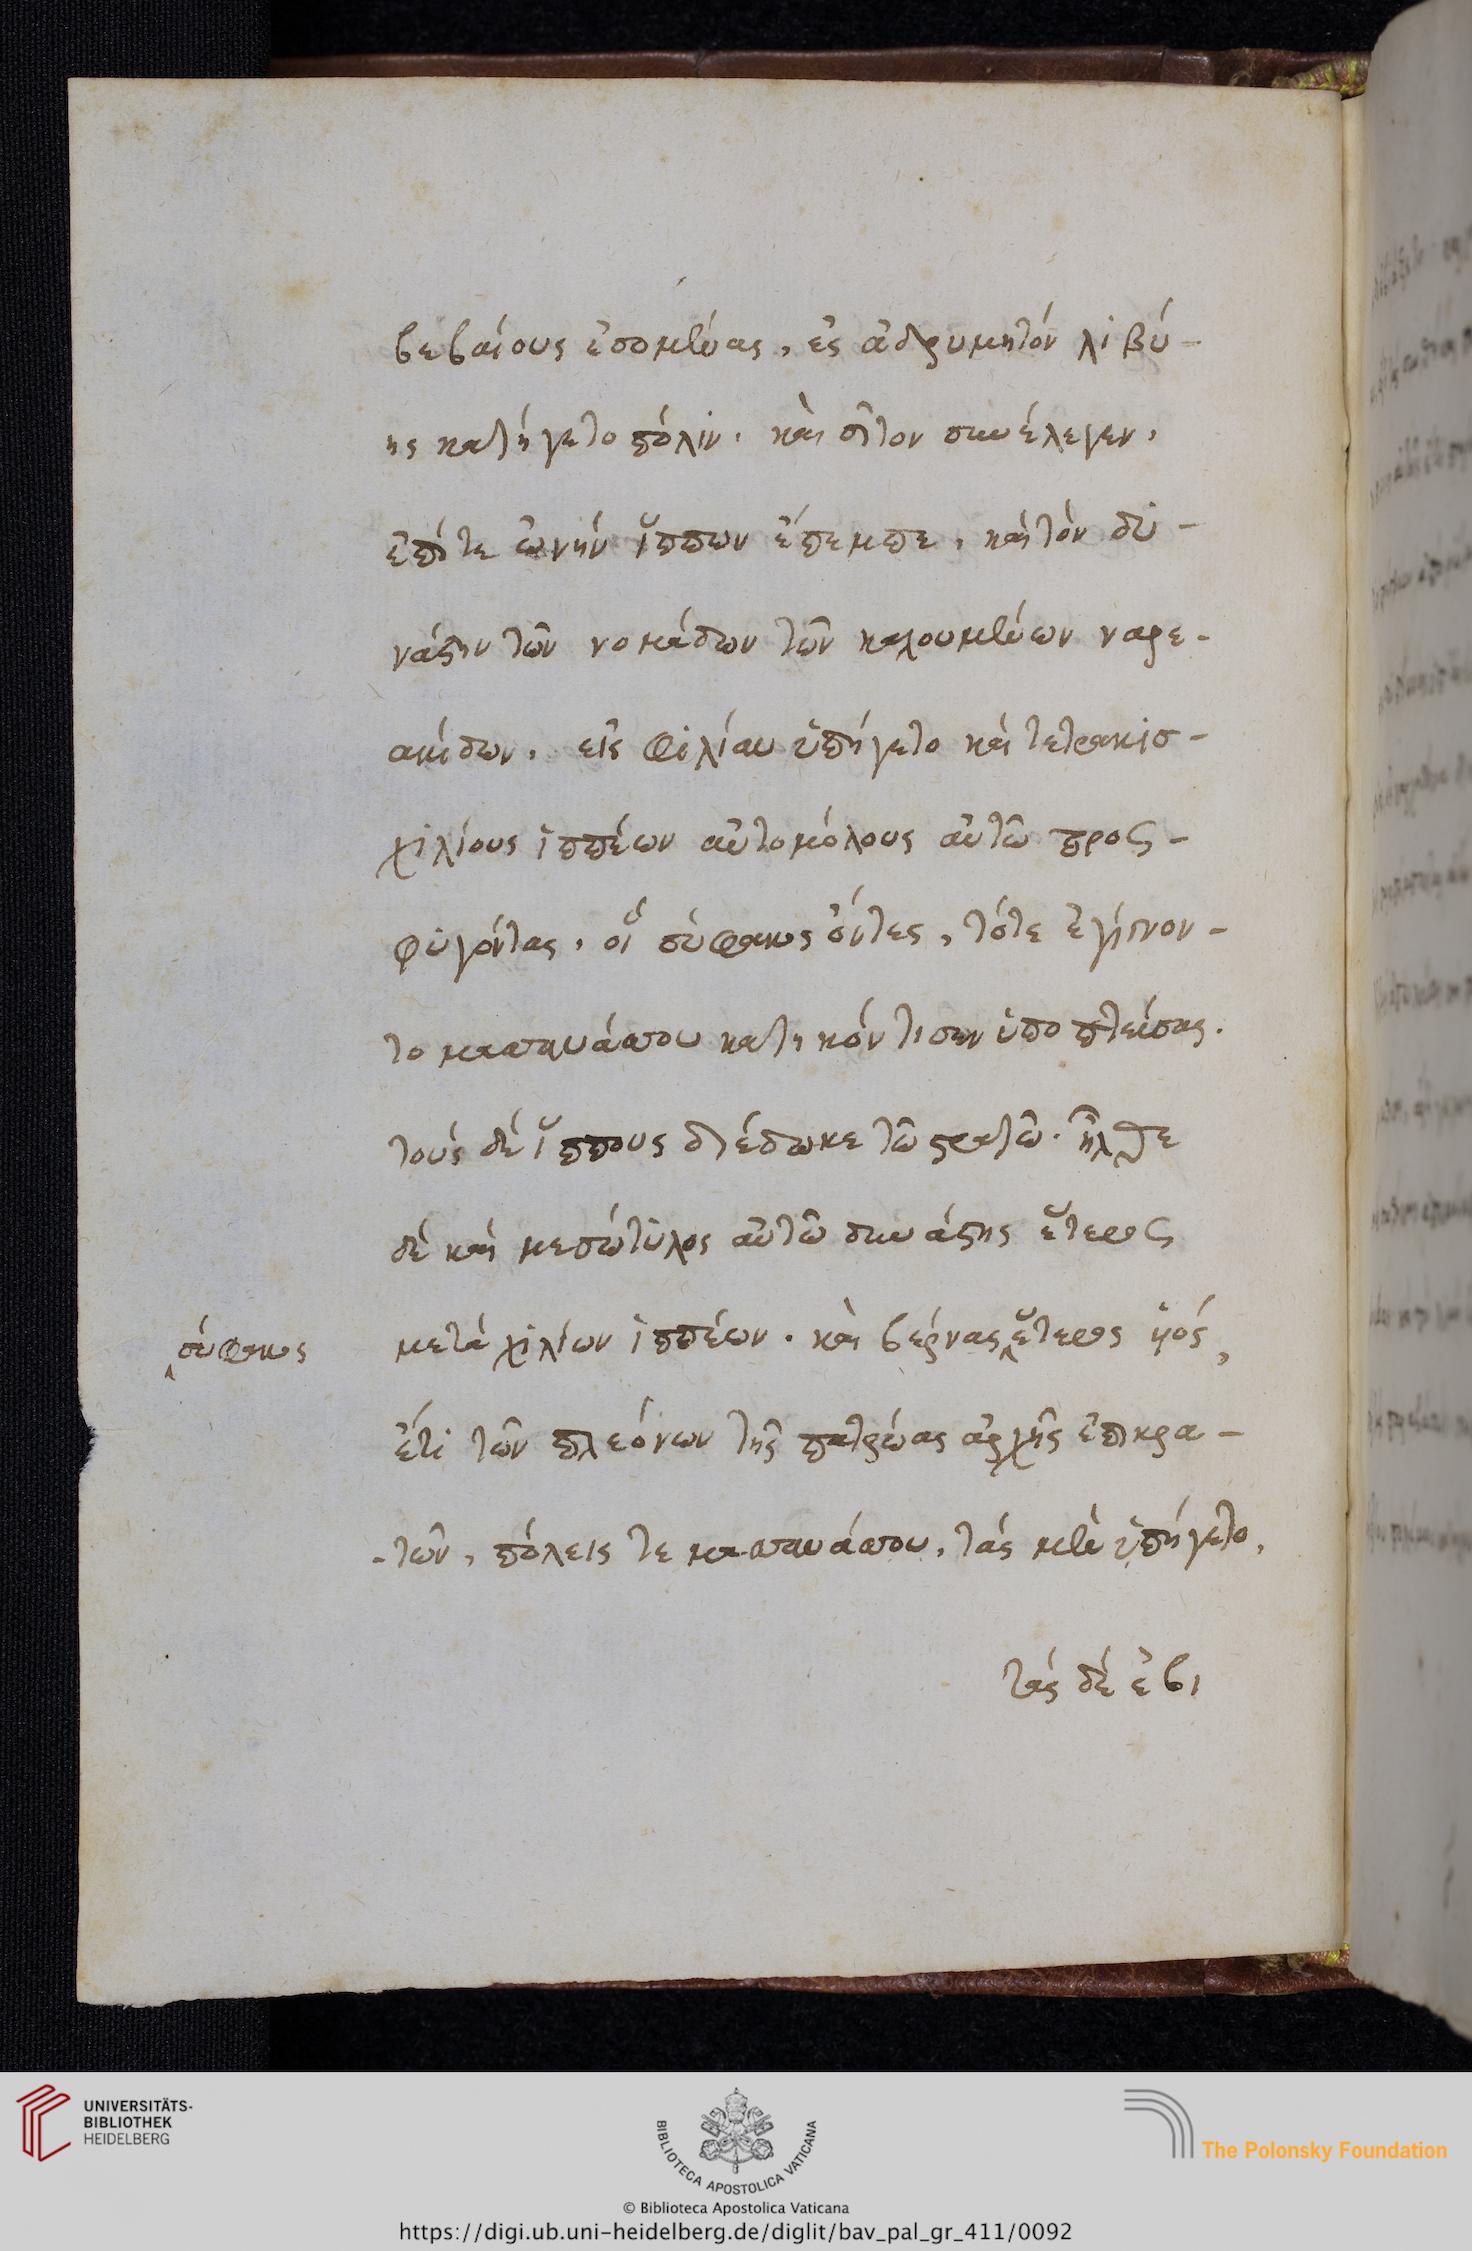 βεβαίους ἐσομένας, ἐς ἀδρυμητόν λιβύ-
ης κατήγετο πόλιν. καὶ σῖτον συνέλεγεν,
ἐπί τε ὠνήν ἵππων ἔπεμπε, καὶ τόν δυ-
νάστην τῶν νομάδων τῶν καλουμένων ναρε-
ακίδων, εἰς φιλίαν ὑπήγετο καὶ τετρακισ-
χιλίους ἱππέων αὐτομόλους αὐτῶ προς-
φυγόντας, οἵ σύφακος ὄντες, τότε ἐγίγνον-
το μασσανάσσου κατηκόντισεν ὑποπτεύσας.
τούς δέ ἵππους διέδωκε τῶ στρατῶ. ἦλθε
δέ καὶ μεσώτυλος αὐτῶ δυνάστης ἕτερος
σύφακος
μετά χιλίων ἱππέων. καὶ βέρνας ἕτερος ὑιός,
ἔτι τῶν πλεόνων τῆς πατρώας ἀρχῆς ἐπικρα-
-τῶν, πόλεις τε μασσανάσσου, τάς μέν ὑπήγετο,
τάς δέ ἐβι
UNIVERSITÄTS-
BIBLIOTHEK
HEIDELBERG
BIBLIOTECA APOSTOLICA VATICANA
The Polonsky Foundation
© Biblioteca Apostolica Vaticana
https://digi.ub.uni-heidelberg.de/diglit/bav_pal_gr_411/0092